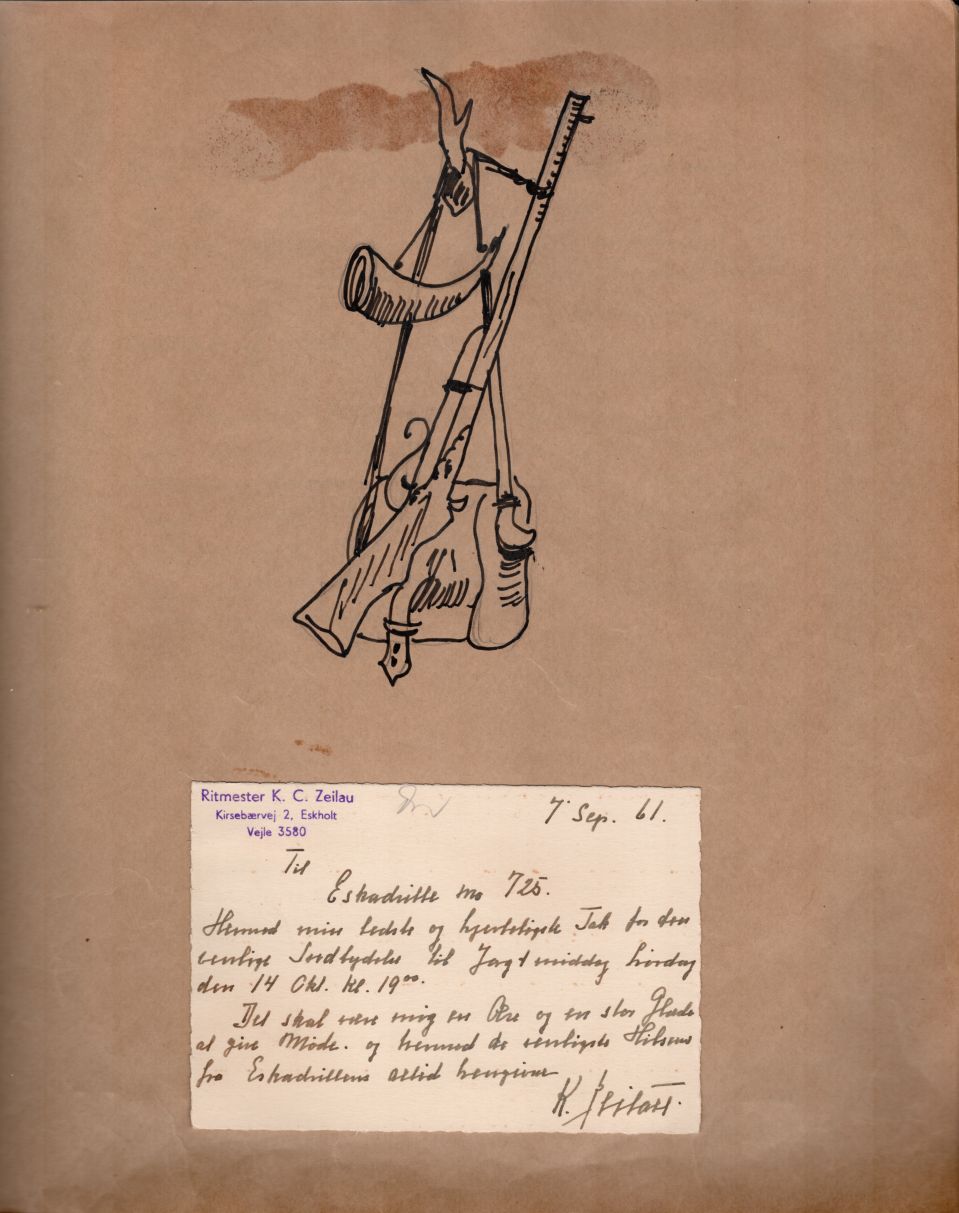 Ritmester K. C. Zeilau
Kirsebærvej 2, Eskholt
Vejle 3580
7 Sep. 61.
Til
Eskadrille no 725.
Hermed min bedste og hjerteligste Tak for den
venlige Indbydelse til Jagtmiddag Lørdag
den 14 Okt. Kl. 19⁰⁰.
Det skal være mig en Ære og en stor Glæde
at give Møde. og hermed de venligste Hilsener
fra Eskadrillens altid hengivne
K. Zeilau.